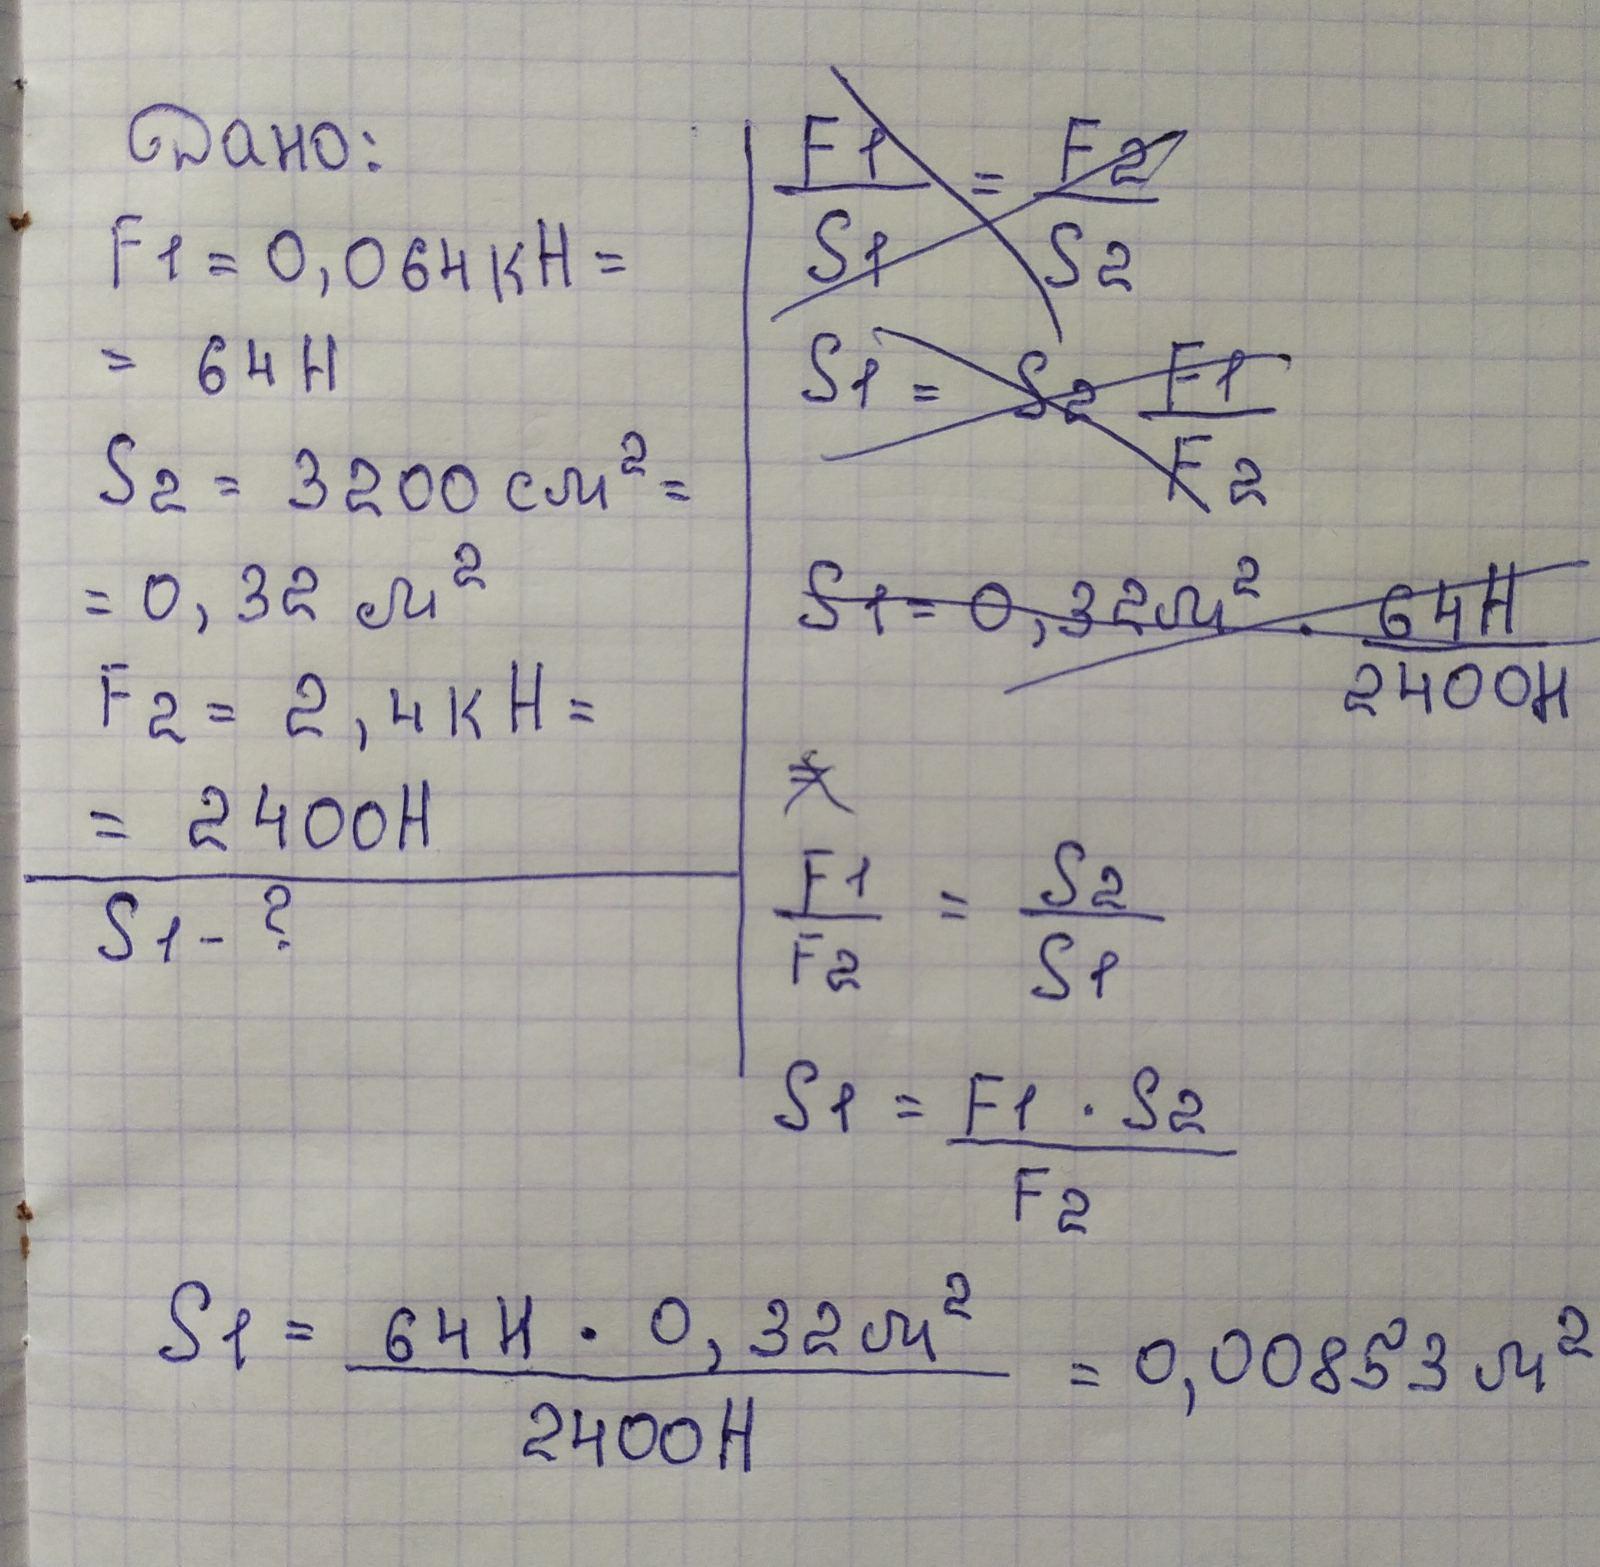 Дано:
F1 = 0,064 кН =
= 64 Н
S2 = 3200 см² =
= 0,32 м²
F2 = 2,4 кН =
= 2400 Н
S1 - ?
F1/S1 = F2/S2
S1 = S2 F1/F2
S1 = 0,32 м² · 64 Н/2400 Н
F1/F2 = S2/S1
S1 = F1 · S2/F2
S1 = 64 Н · 0,32 м²/2400 Н = 0,00853 м²